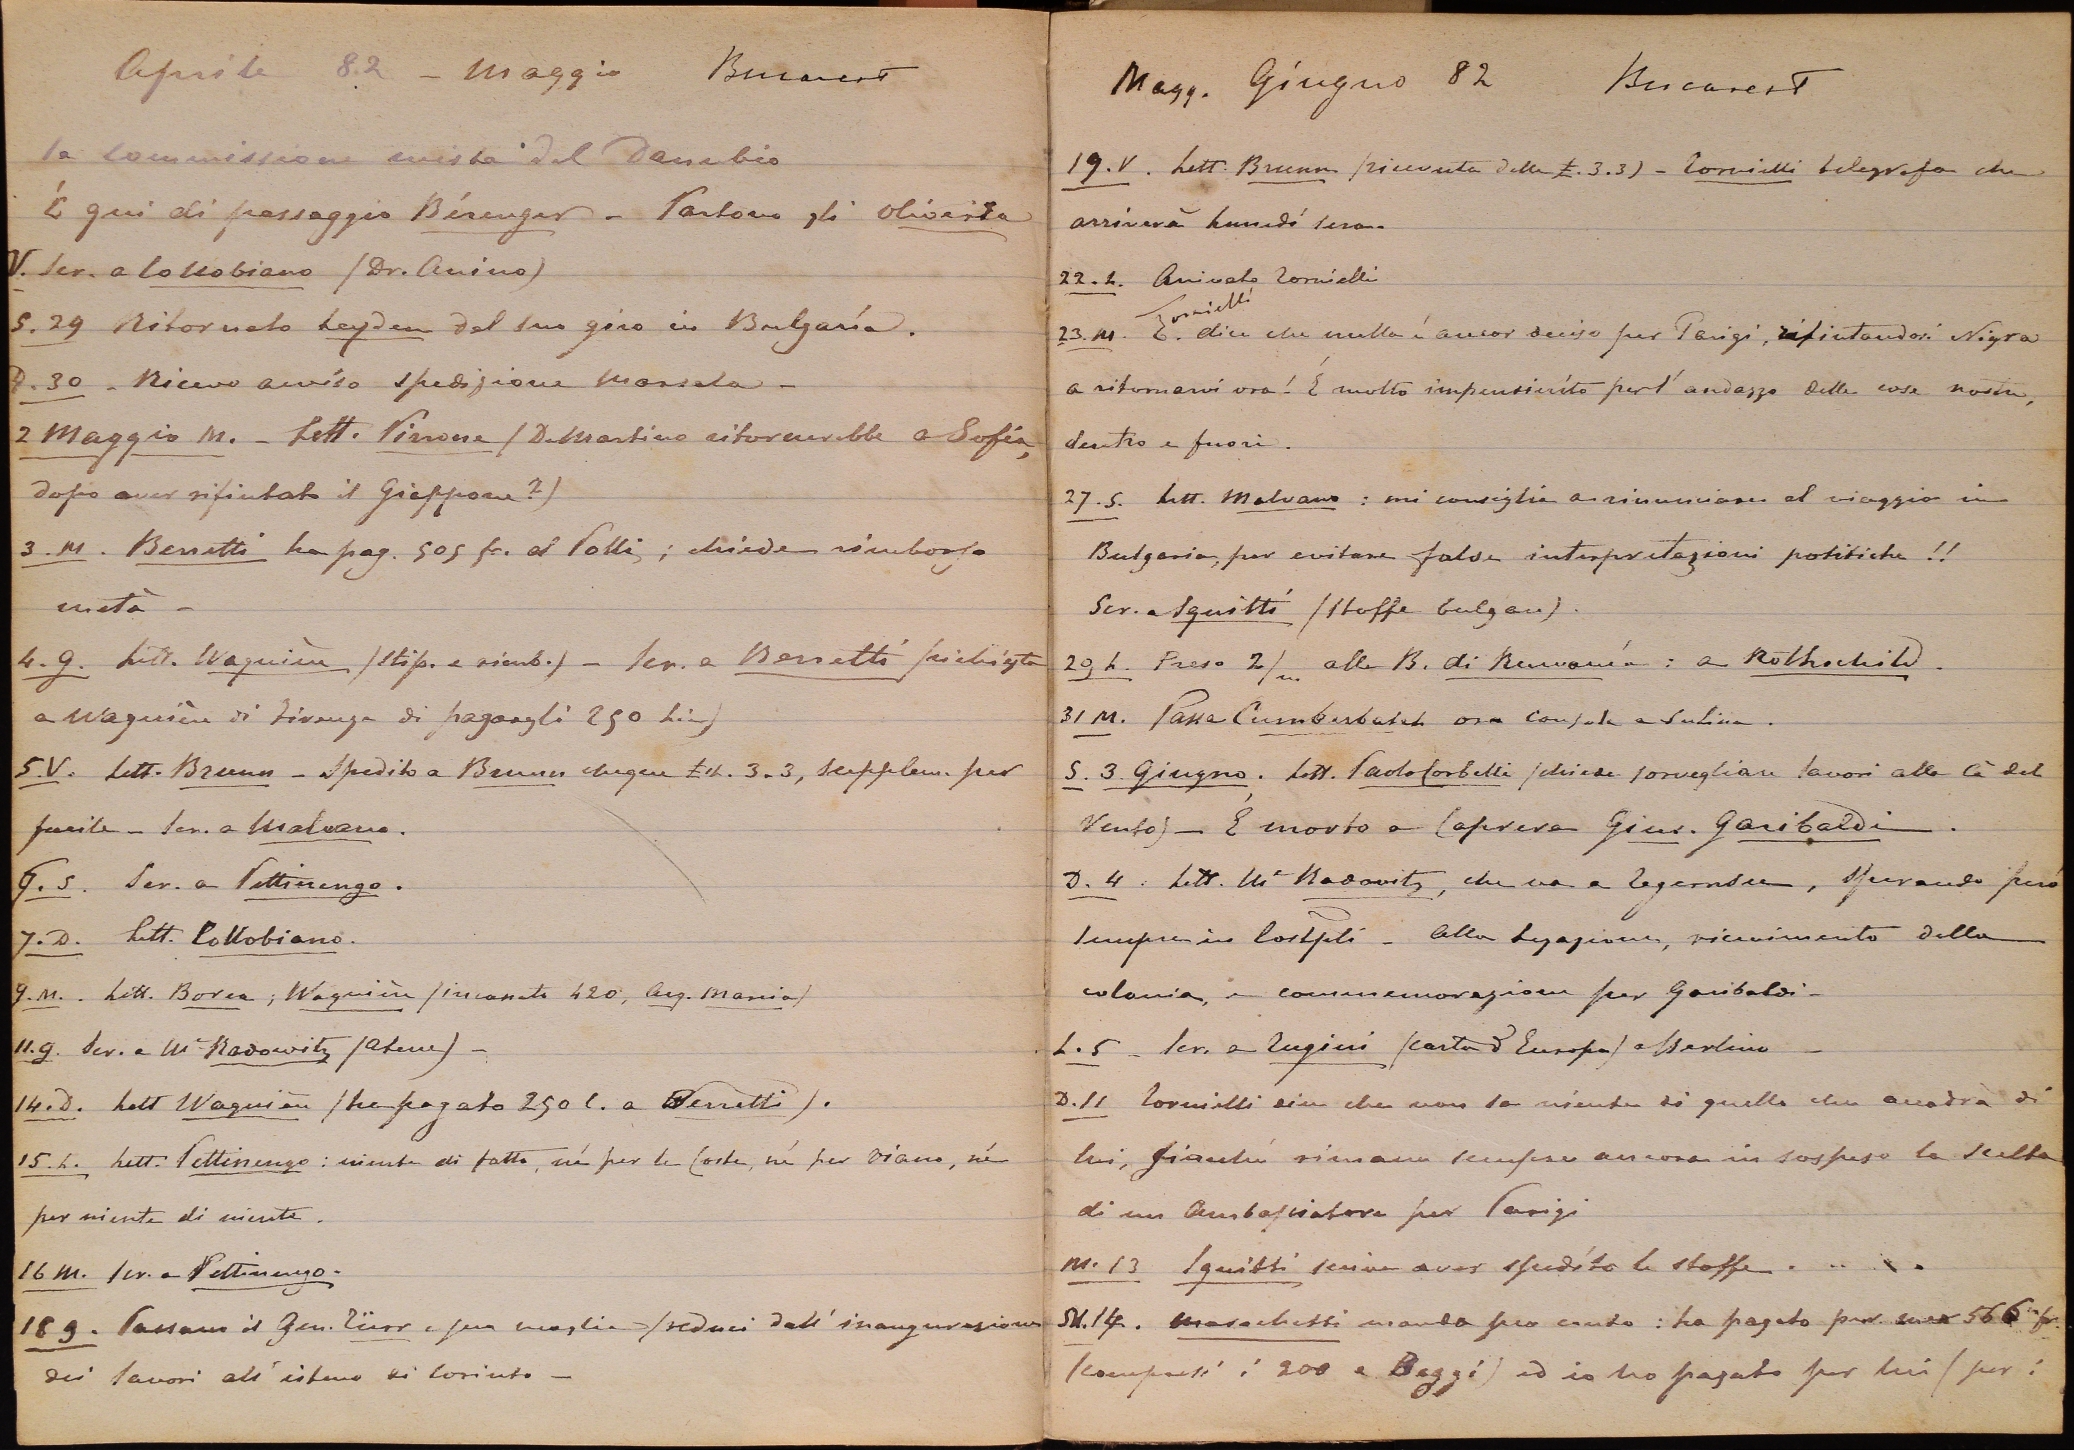 Aprile 82 - Maggio Bucarest
la commissione mista del Danubio
È qui di passaggio Bérenger - Partono gli Oliveira
V. Scr. a Collobiano (Dr. Anino)
S. 29 Ritornato Leyden dal suo giro in Bulgaria.
D. 30 - Ricevo avviso spedizione Marsala -
2 Maggio M. - Lett. Pirrone (DeMartino ritornerebbe a Sofia,
dopo aver rifiutato il Giappone?)
3. M. Berretti ha pag. 505 fr. al Polli; chiede rimborso
metà -
4. G. Lett. Waguière (stip. e rimb.) - Scr. a Berretti (richiesta
a Waguière di Firenze di pagargli 250 lire)
5. V. Lett. Brunn - Spedito a Brunn cheque £st. 3.3, supplem. per
fucile - Scr. a Malvano.
6. S. Scr. a Pettinengo.
7. D. Lett. Collobiano.
9. M. Lett. Borea; Waguière (incassate 420, Arg. Mania)
11. G. Scr. a Mr Radowitz (Atene) -
14. D. Lett Waguière (ha pagato 250 l. a Berretti).
15. L. Lett. Pettinengo: niente di fatto, né per le Coste, né per Viano, né
per niente di niente.
16 M. Scr. a Pettinengo.
18 G. Passano il Gen. Türr e sua moglie (reduci dall'inaugurazione
dei lavori all'istmo di Corinto -
Magg. Giugno 82 Bucarest
19. V. Lett. Brunn (ricevuta delle £. 3.3) - Tornielli telegrafa che
arriverà lunedí sera.
22. L. Arrivato Tornielli
Tornielli
23. M. T. dice che nulla é ancor deciso per Parigi, rifiutandosi Nigra
a ritornarvi ora! É molto impensierito per l'andazzo delle cose nostre,
dentro e fuori.
27. S. Lett. Malvano: mi consiglia a rinunciare al viaggio in
Bulgaria, per evitare false interpretazioni politiche!!
Scr. a Squitti (stoffe bulgare).
29 L. Preso 2/m alla B. di Rumanía: a Rothschild.
31 M. Passa Cumberbatch ora console a Sulina.
S. 3. Giugno. Lett. Paolo Corbelli (chiede sorvegliare lavori alla Cà del
Vento) - É morto a Caprera Gius. Garibaldi.
D. 4. Lett. Mr Radowitz, che va a Tegernsee, sperando però
sempre in Costpli - Alla Legazione, ricevimento della
colonia, e commemorazione per Garibaldi -
L. 5 - Scr. a Tugini (carta d'Europa) a Berlino -
D. 11 Tornielli dice che non sa niente di quello che accadrà di
lui, finché rimane sempre ancora in sospeso la scelta
di un Ambasciatore per Parigi
M. 13 Squitti scrive aver spedito le stoffe . . . . .
M. 14. Marochetti manda suo conto: ha pagato per me 566 fr.
(compresi i 200 a Beggi) ed io ho pagato per lui (per i